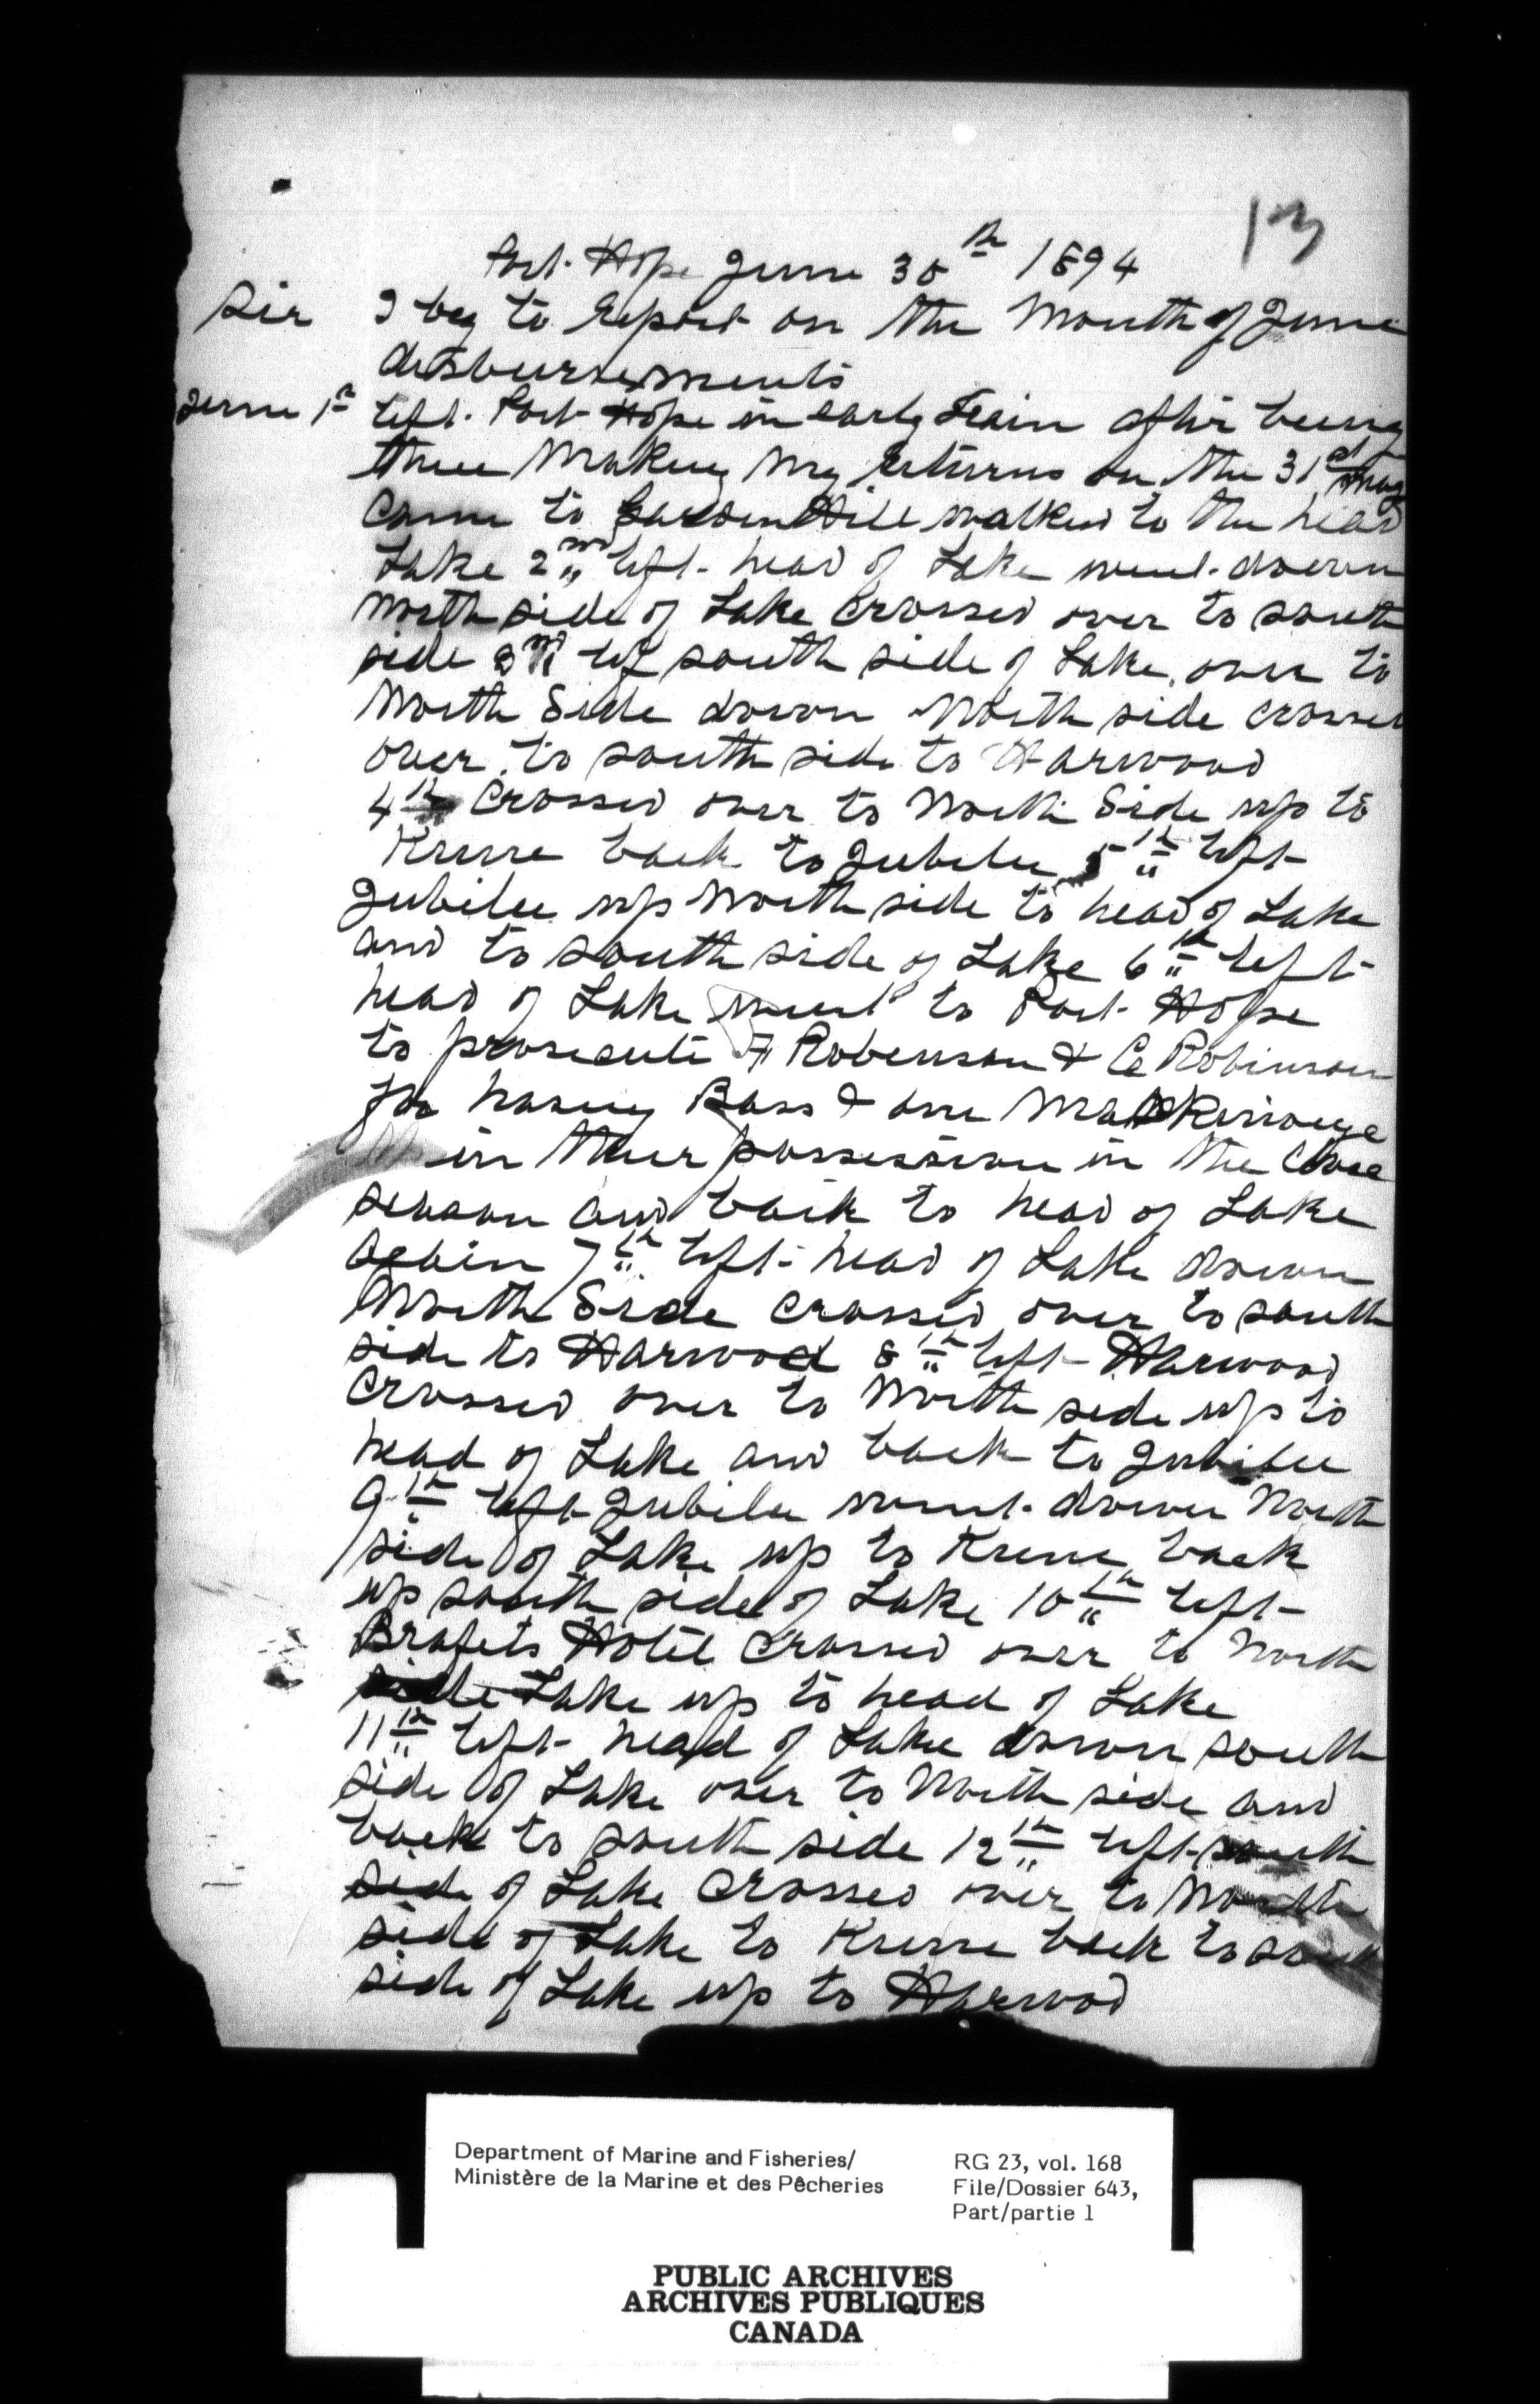 13
Port Hope June 30th 1894
Sir I beg to Report on the Month of June
disbursements
June 1st left Port Hope in early Train after being
there Making My Returns on the 31st May
Came to Garden Hill walked to the head
Lake 2nd left head of Lake went down
North side of Lake crossed over to south
side 3rd left south side of Lake over to
North Side down North side crossed
over to south side to Harwood
4th Crossed over to North Side up to
Keene back to Jubilee 5th left
Jubilee up North side to head of Lake
and to south side of Lake 6th left
head of Lake went to Port Hope
to prosecute F Robenson & C Robinson
for having Bass & one Maskinouge
in their possession in the Close
season and back to head of Lake
again 7th left head of Lake down
North Side crossed over to south
side to Harwood 8th left Harwood
Crossed over to North side up to
head of Lake and back to Jubilee
9th left Jubilee went down North
side of Lake up to Keene back
up south side of Lake 10th left
Hotel Crossed over to North
side Lake up to head of Lake
11th left head of Lake down south
side of Lake over to North side and
back to south side 12th left south
side of Lake Crossed over to North
side of Lake to Keene back to south
side of Lake up to Harwood
Department of Marine and Fisheries/
Ministère de la Marine et des Pêcheries
RG 23, vol. 168
File/Dossier 643,
Part/partie 1
PUBLIC ARCHIVES
ARCHIVES PUBLIQUES
CANADA